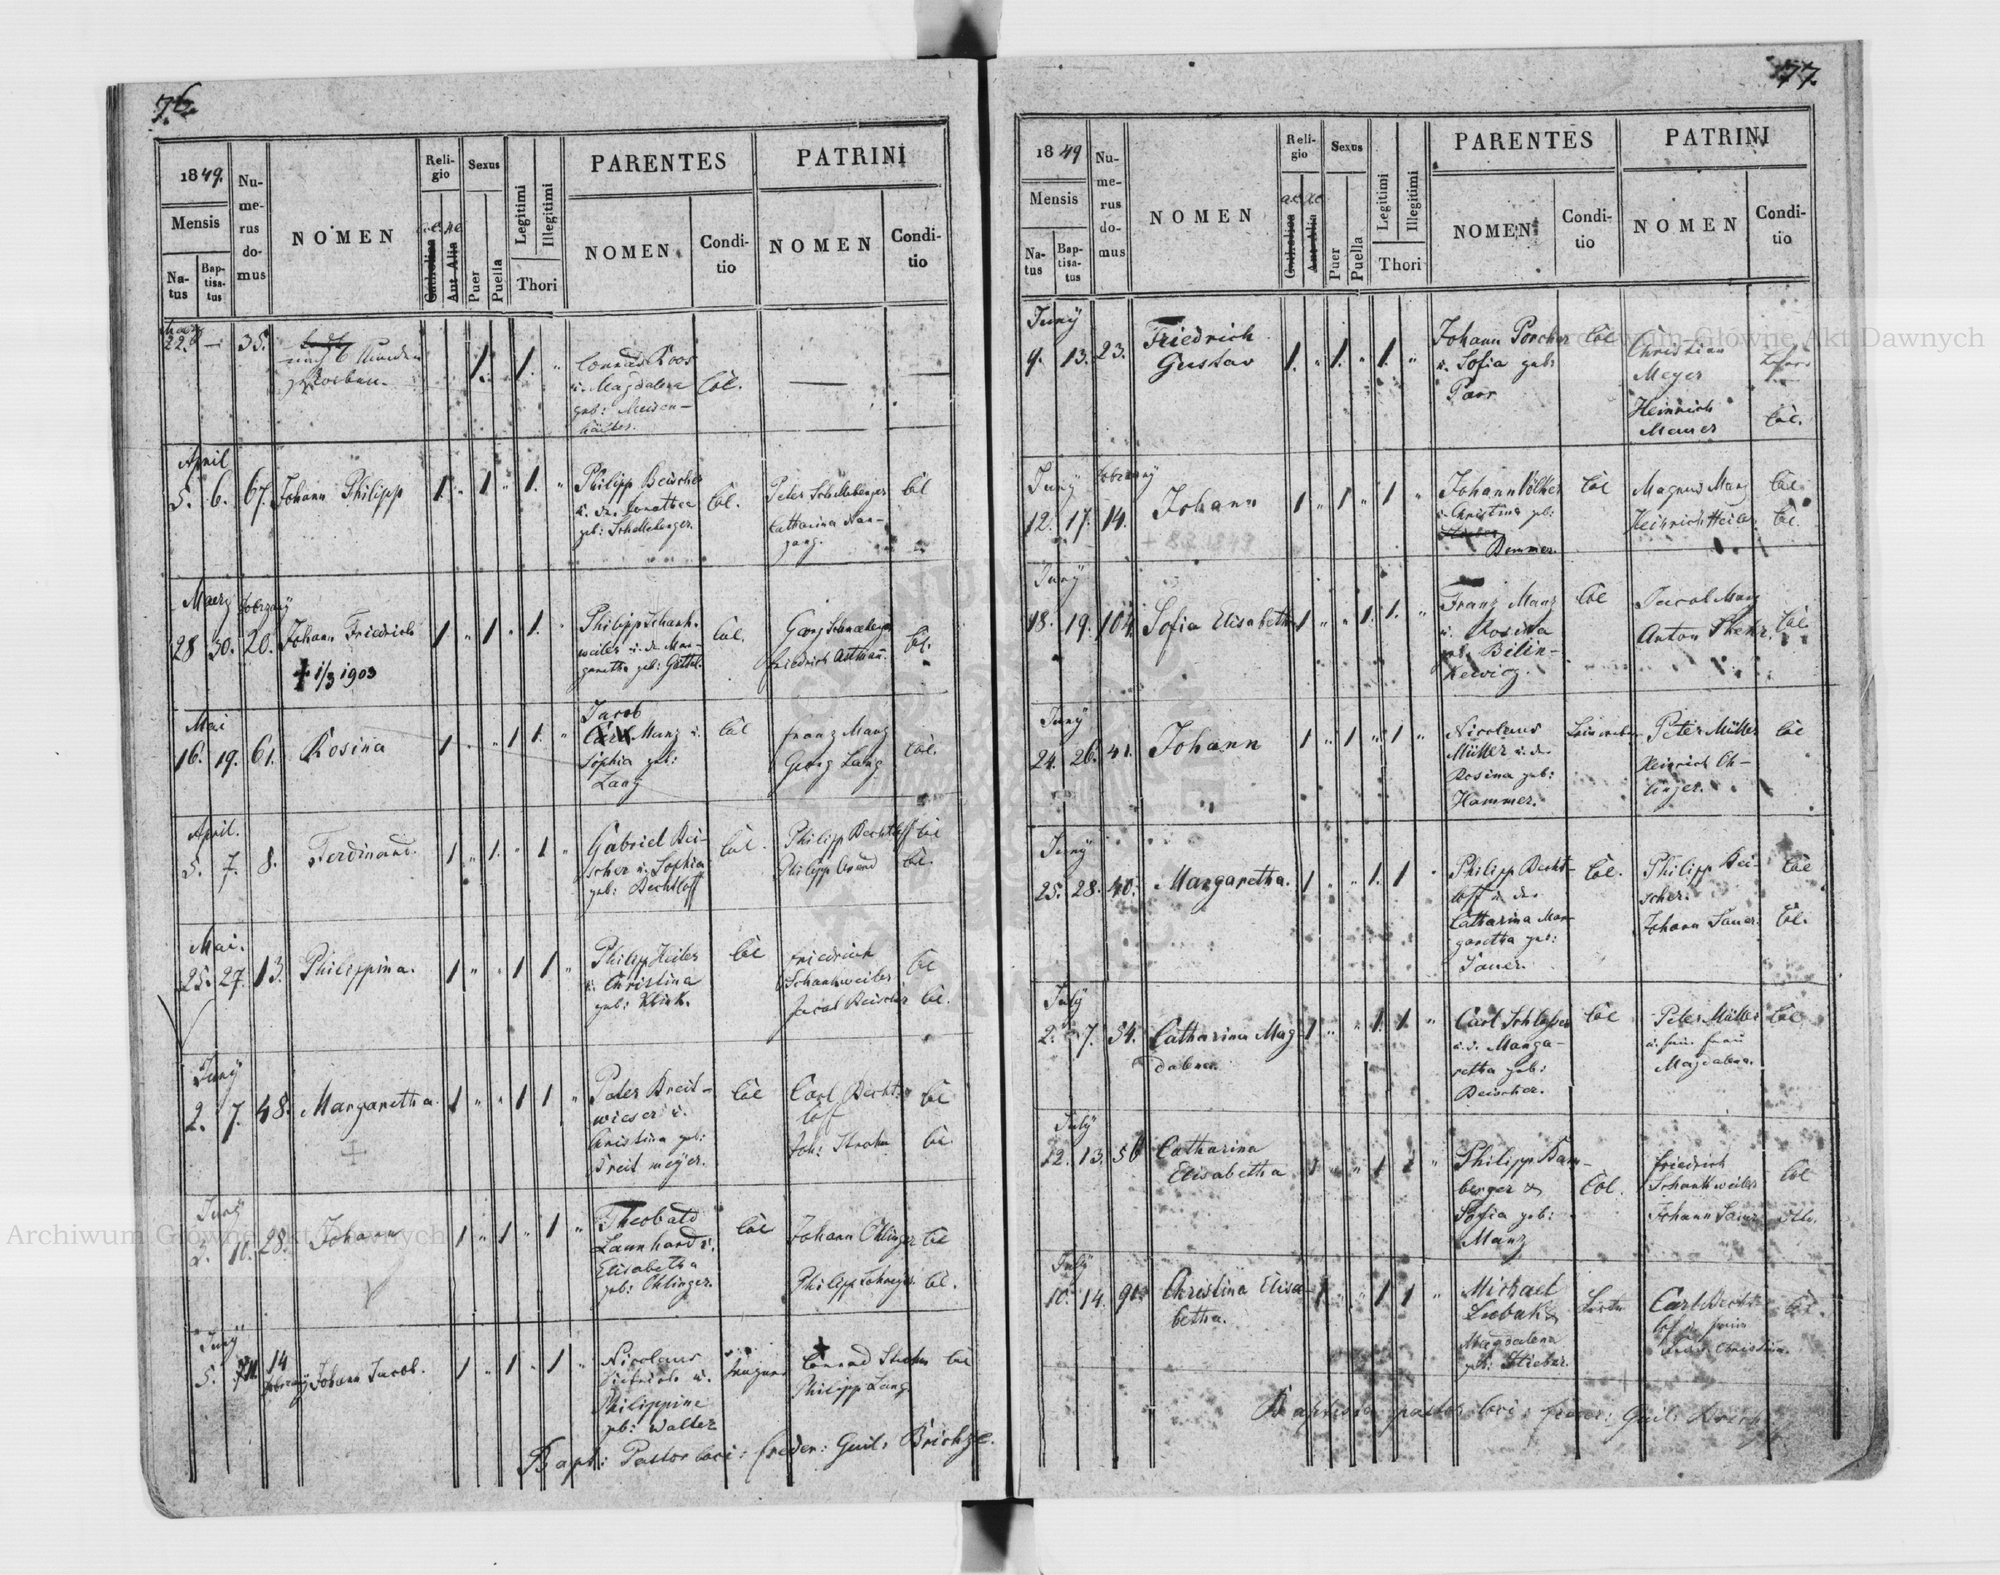 76.
1849.
Mensis
Na-
tus
Bap-
tisa-
tus
Nu-
me-
rus
do-
mus
NOMEN
Reli-
gio
Catholica
Aut Alia
Sexus
Puer
Puella
Legitimi
Illegitimi
Thori
PARENTES
NOMEN
Condi-
tio
PATRINI
NOMEN
Condi-
tio
22. — 35.
1. 1. "
Conrad Roos
u. Magdalena
geb:
Col.
April
5. 6. 67. Johann Philipp 1. " 1 " 1. "
Philipp Beischer
geb: Schellenberger
Col.
Peter Schellenberger
Catharina Man-
gang.
Col
Maerz
28 30. 20. Johann Friedrich
Dobrzany
+ 1/3 1903
1 " 1 " 1. "
Philipp Schank-
weiler u. d. Mar-
garetha geb: Göttel.
Col.
Friedrich Astmann.
Col.
Mai
16. 19. 61. Rosina 1 " " 1 1. "
Jacob
Carl Manz u.
Sophia geb:
Lang
Col
Franz Manz
Georg Lang
Col.
April.
5. 7. 8. Ferdinand. 1 " 1. " 1 "
Gabriel Bei-
scher u. Sophia
geb: Bechtloff
Col.
Philipp Bechtloff Col
Philipp Arend Col.
Mai.
25. 27. 13. Philippina. 1 " " 1 1 "
Philipp Heiler
u. Christina
geb: Klink.
Col
Friedrich
Schankweiler
Col
Jacob Beischer Col.
Juny
2. 7. 48. Margaretha. 1 " " 1 1 "
Peter Breit-
wieser u.
Christina geb:
Freitmeyer.
Col
Carl Becht-
loff
Col
Joh: Strohm Col.
Juny
3. 10. 28. Johann 1 " 1 " 1 "
Theobald
Launhard u.
Elisabetha
geb: Ohlinger.
Col
Johann Ohlinger Col
Philipp Col.
Juny
5. 14 Johann Jacob. 1 " 1 " 1 "
Dobrzany
Nicolaus
Philippine
geb: Walter
Conrad Strohm Col
Philipp Lang
Bapt: Pastor loci: Freder: Guil:
77.
1849
Mensis
Na-
tus
Bap-
tisa-
tus
Nu-
me-
rus
do-
mus
NOMEN
Reli-
gio
Catholica
Aut Alia
Sexus
Puer
Puella
Legitimi
Illegitimi
Thori
PARENTES
NOMEN
Condi-
tio
PATRINI
NOMEN
Condi-
tio
Juny
9. 13. 23. Friedrich
Gustav
1. " 1. " 1. "
Johann Porcher
u. Sofia geb:
Parr
Col
Christian
Meyer
Heinrich
Mauer
Col.
Juny
12. 17. 14. Johann 1 " 1 " 1 "
Dobrzany
Johann Völker
u. Christina geb:
Demmer.
Col
Magnus Manz Col.
Heinrich Heiler Col.
Juny
18. 19. 104. Sofia Elisabeth 1 " " 1. 1. "
Franz Manz
u. Rosina
geb. Bilin-
kewicz.
Col
Jacob Manz
Anton Col
Juny
24. 26. 41. Johann 1 " 1 " 1 "
Nicolaus
Müller u. d.
Rosina geb:
Hammer.
Peter Müller Col
Heinrich Oh-
linger.
Juny
25. 28. 40. Margaretha. 1 " " 1. 1 "
Philipp Becht-
loff u. d.
Catharina Mar-
garetha geb:
Sauer.
Col.
Philipp Bei-
scher.
Col
Johann Sauer. Col.
July
2. 7. 54. Catharina Mag-
dalena
1 " " 1. 1. "
Carl Schlesser
u. d. Marga-
retha geb:
Beischer.
Col
Peter Müller Col
u. sein Frau
Magdalena.
July
12. 13. 56 Catharina
Elisabetha
1 " " 1 1 "
Philipp Bam-
berger &
Sofia geb:
Manz
Col.
Friedrich
Schankweiler
Col
Johann Sauer
July
10. 14. 91. Christina Elisa-
betha.
1. " " 1 1 "
Michael
Lubak &
Magdalena
geb: Stieber.
Carl Becht-
lof u. sein
Frau Christina.
Col.
pastor loci: Freder: Guil:
Archiwum Główne Akt Dawnych
Archiwum Główne Akt Dawnych